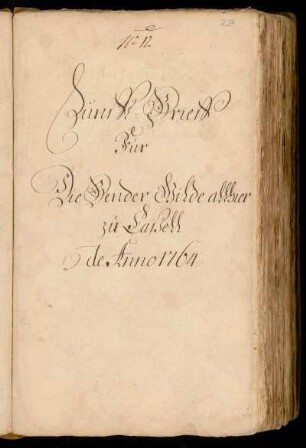 No. 12.
Zunfft-Brieff
Für
Die Bender Gilde allhier
zu Cassell
de Anno 1764